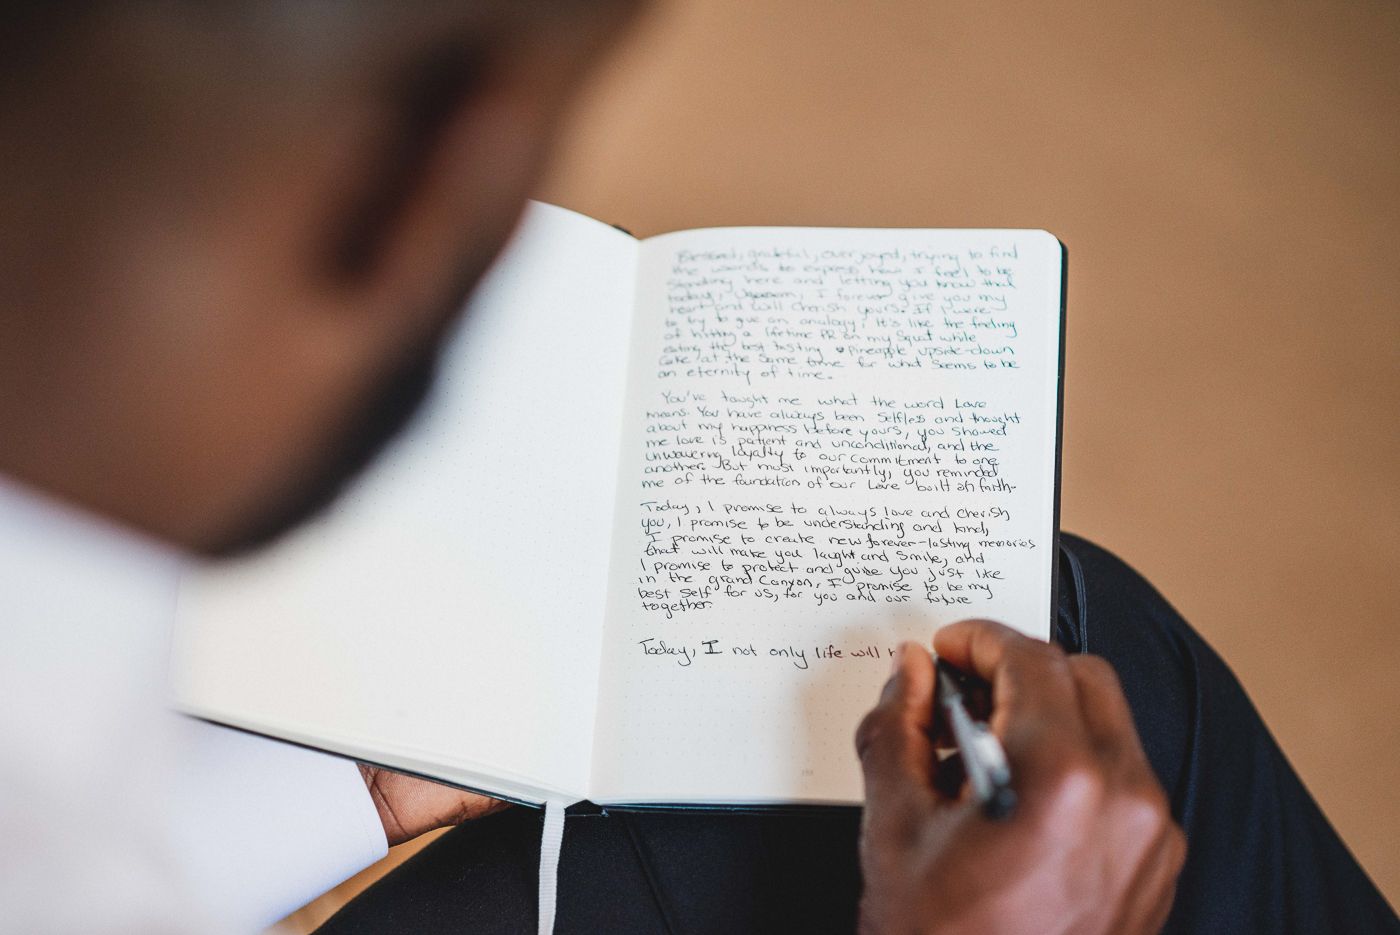 Blessed, grateful, overjoyed, trying to find
the words to express how I feel to be
standing here and letting you know that
today, I forever give you my
heart and will cherish yours. If I were
to try to give an analogy, it's like the feeling
of hitting a lifetime PR on my squat while
eating the best tasting pineapple upside-down
cake at the same time for what seems to be
an eternity of time.
You've taught me what the word Love
means. You have always been selfless and thought
about my happiness before yours, you showed
me love is patient and unconditional, and the
unwavering loyalty to our commitment to one
another. But most importantly, you reminded
me of the foundation of our Love built on faith.
Today, I promise to always love and cherish
you, I promise to be understanding and kind,
I promise to create new forever-lasting memories
that will make you laugh and smile, and
I promise to protect and guide you just like
in the grand Canyon, I promise to be my
best self for us, for you and our future
together.
Today, I not only life will